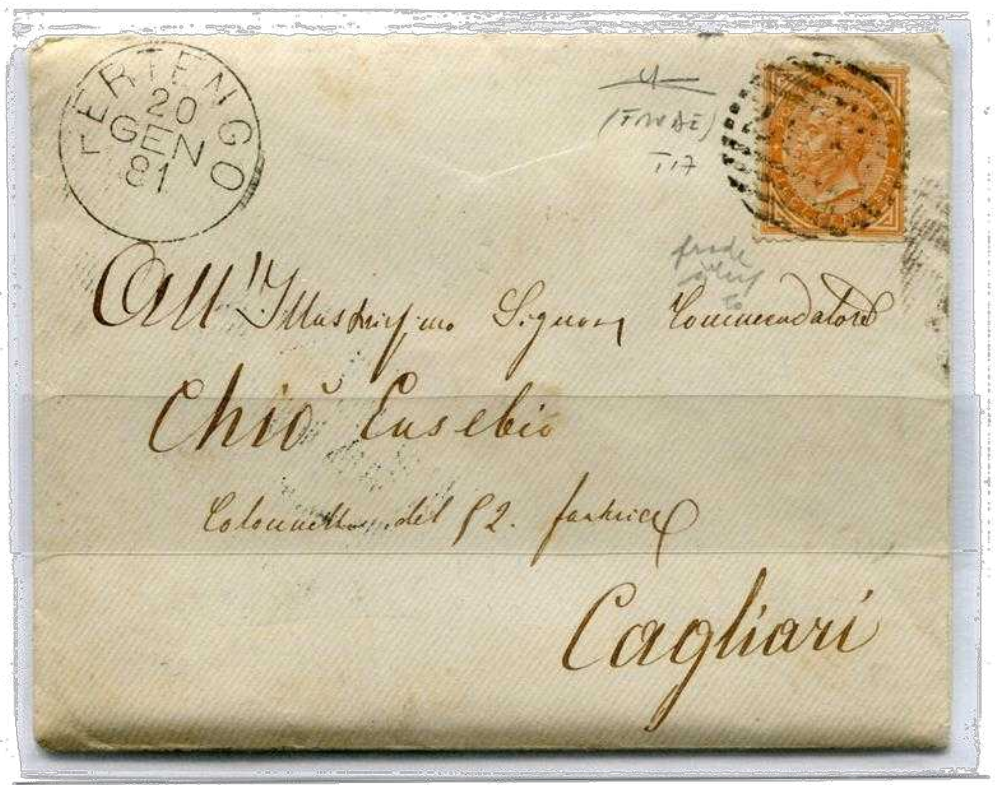 FERTENGO
20
GEN
81
4
(FRODE)
T17
frode
All'Illustrissimo Signor Commendatore
Chiò Eusebio
Colonnello del 52. fanteria
Cagliari